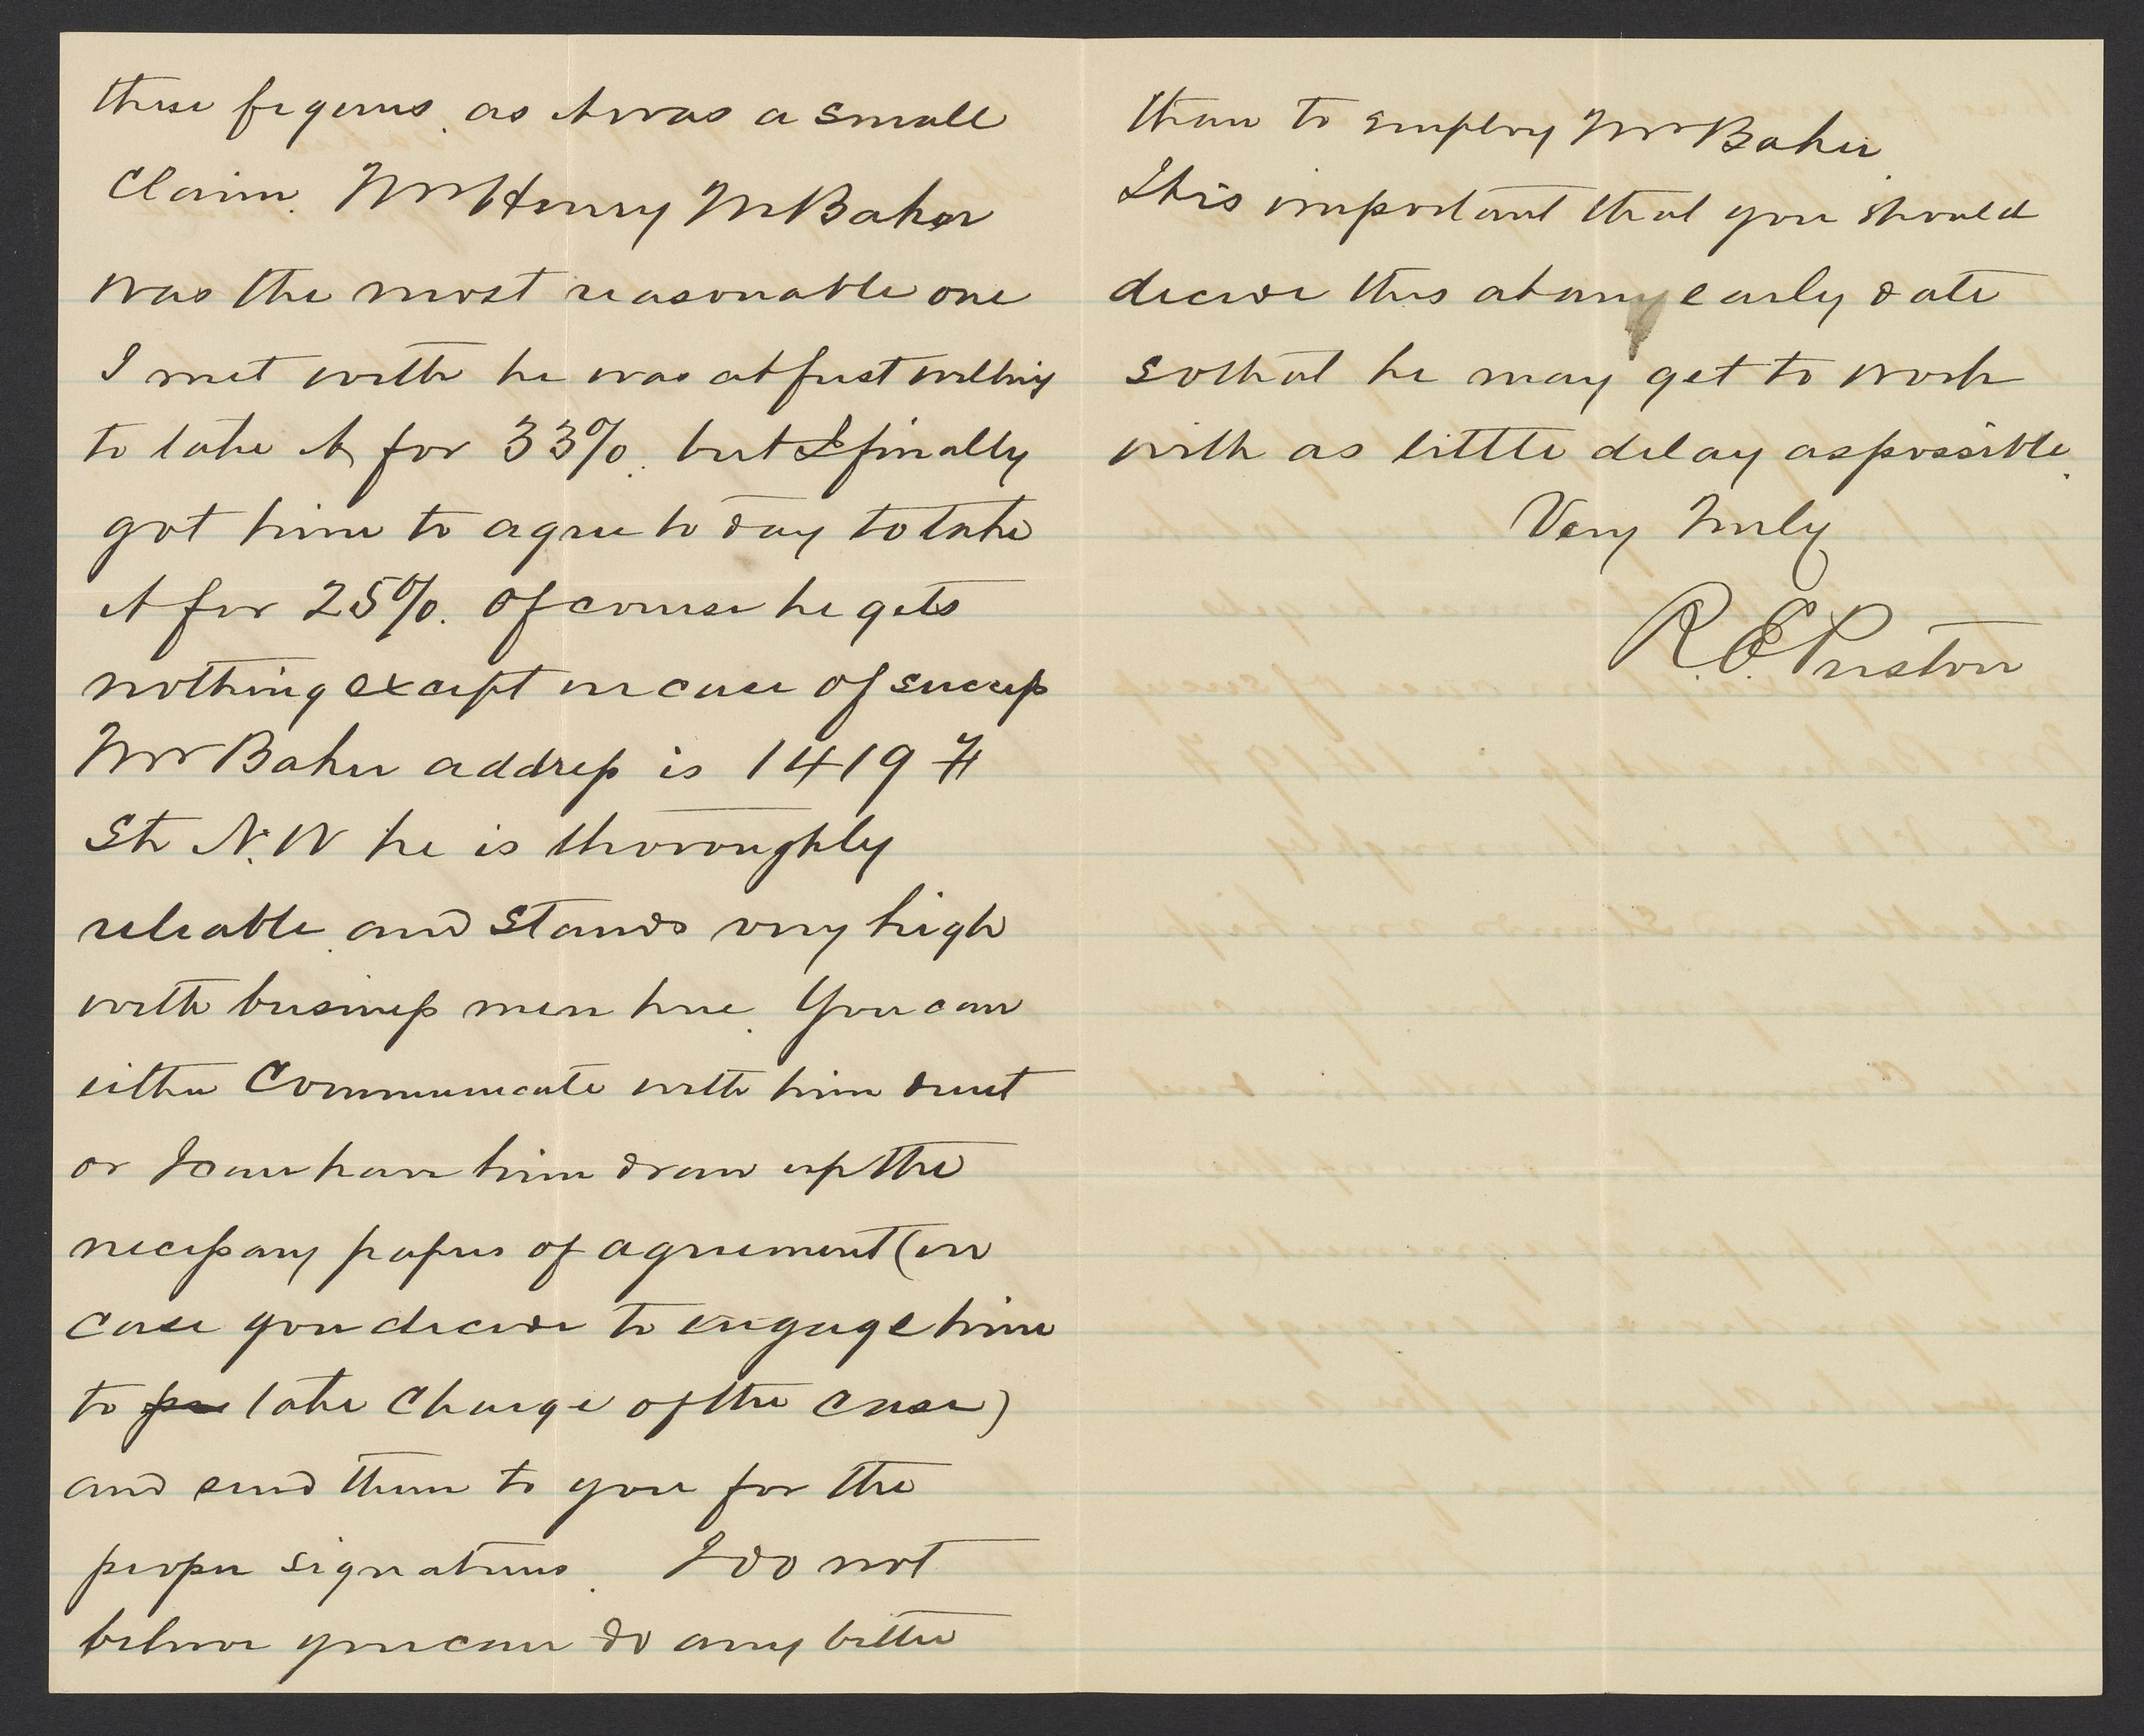 these figures, as it was a small
Claim. Mr Henry M Baker
was the most reasonable one
I met with he was at first willing
to take it for 33%. but I finally
got him to agree to day to take
it for 25%. Of course he gets
nothing except in case of success
Mr Baker address is 1419 F
St N.W he is thoroughly
reliable and stands very high
with business men here. You can
either Communicate with him direct
or I can have him draw up the
necessary papers of agreement (in
case you decide to engage him
to take Charge of the case)
and send them to you for the
proper signatures. I do not
believe you can do any better
than to employ Mr Baker
It is important that you should
decide this at any early date
so that he may get to work
with as little delay as possible.
Very Truly
R. E. Preston